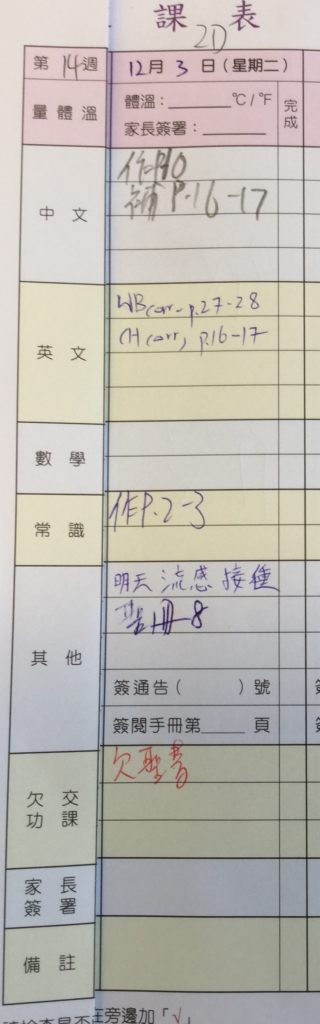 課表
2D
第14週 12月3日(星期二)
量體溫 體溫:______°C/°F 完成
家長簽署:______
中文 作P.10
補P.16-17
英文 WB corr. p.27-28
CH corr, p.16-17
數學
常識 作P.2-3
其他 明天流感接種
冊-8
簽通告( )號
簽閱手冊第____頁
欠交功課 欠聖書
家長簽署
備註
在旁邊加「√」